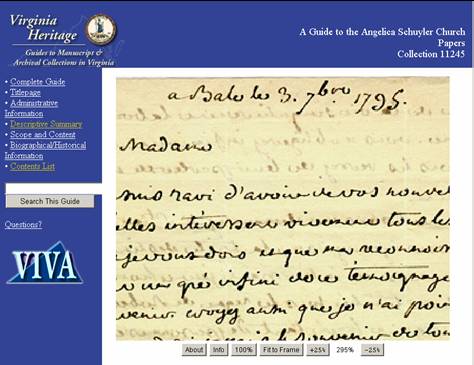 Virginia
Heritage
Guides to Manuscript &
Archival Collections in Virginia
A Guide to the Angelica Schuyler Church
Papers
Collection 11245
• Complete Guide
• Titlepage
• Administrative
Information
• Descriptive Summary
• Scope and Content
• Biographical/Historical
Information
• Contents List
Search This Guide
Questions?
VIVA
a Bale le 3. 7bre 1795.
Madame
suis ravi d'avoir de vos nouvel
elles intéressen vivement tous les
je vous dois et que ma reconnois
infini de ce temoignage
venir croyez aussi que je n'ai poin
le souvenir de tou
About Info 100% Fit to Frame +25% 295% -25%